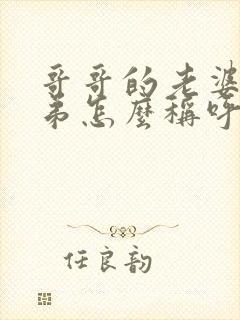 哥哥的老婆
弟怎麼稱呼
任良韵